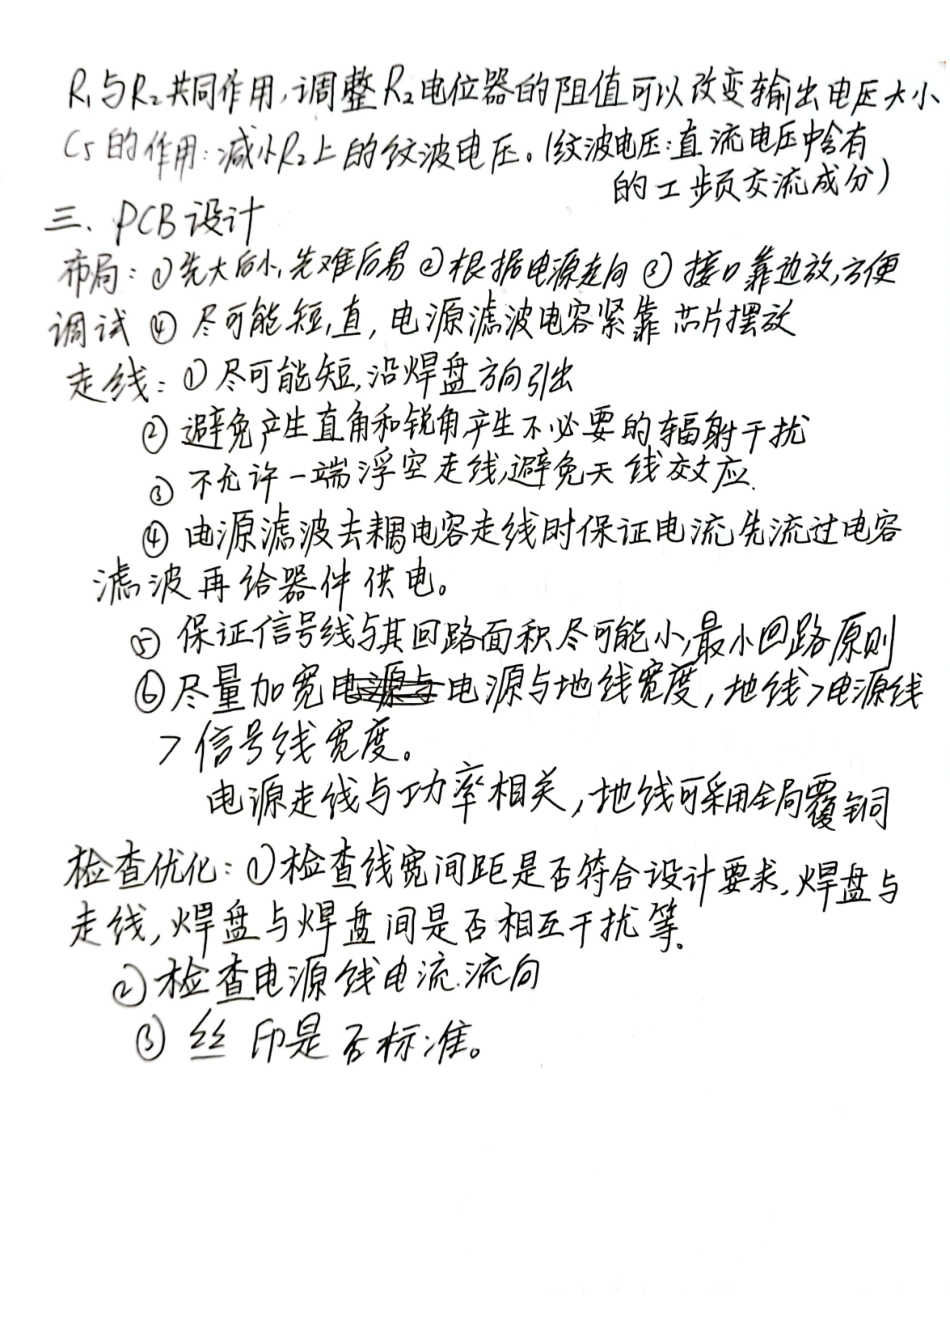 R₁与R₂共同作用，调整R₂电位器的阻值可以改变输出电压大小
C5的作用：减小R₂上的纹波电压。(纹波电压：直流电压中含有
的工步页交流成分)
三、PCB设计
布局：①先大后小，先难后易 ②根据电源走向 ③接口靠边放，方便
调试 ④ 尽可能短，直，电源滤波电容紧靠芯片摆放
走线：①尽可能短，沿焊盘方向引出
② 避免产生直角和锐角产生不必要的辐射干扰
③ 不允许一端浮空走线，避免天线效应.
④ 电源滤波去耦电容走线时保证电流先流过电容
滤波再给器件供电。
⑤ 保证信号线与其回路面积尽可能小，最小回路原则
⑥尽量加宽电源与地线宽度，地线>电源线
>信号线宽度。
电源走线与功率相关，地线可采用全局覆铜
检查优化：①检查线宽间距是否符合设计要求，焊盘与
走线，焊盘与焊盘间是否相互干扰等.
②检查电源线电流流向
③ 丝印是否标准。